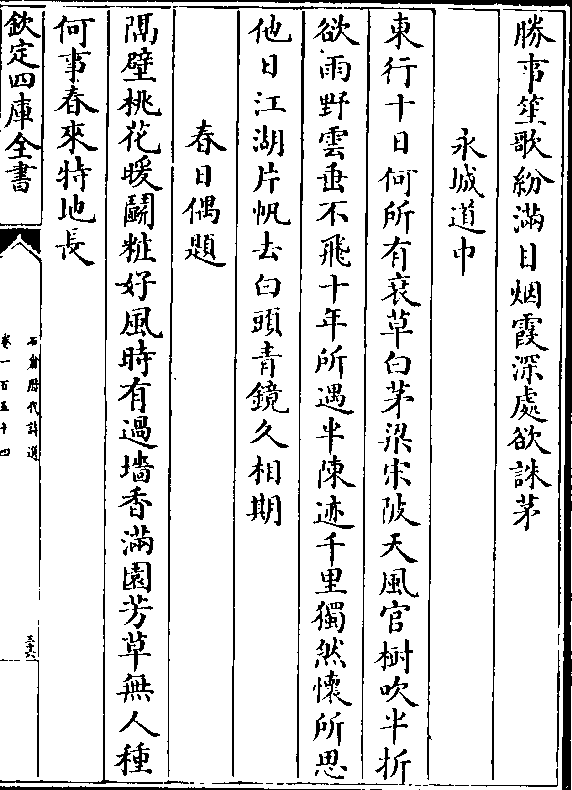 勝事笙歌紛滿目烟霞深處欲誅茅
永城道中
東行十日何所有衰草白茅梁宋陂天風官樹吹半折
欲雨野雲垂不飛十年所遇半陳迹千里獨然懷所思
他日江湖片帆去白頭青鏡久相期
春日偶題
隔壁桃花暖鬭粧好風時有過墻香滿園芳草無人種
何事春來特地長
欽定四庫全書
石倉歷代詩選
卷一百五十四
三六